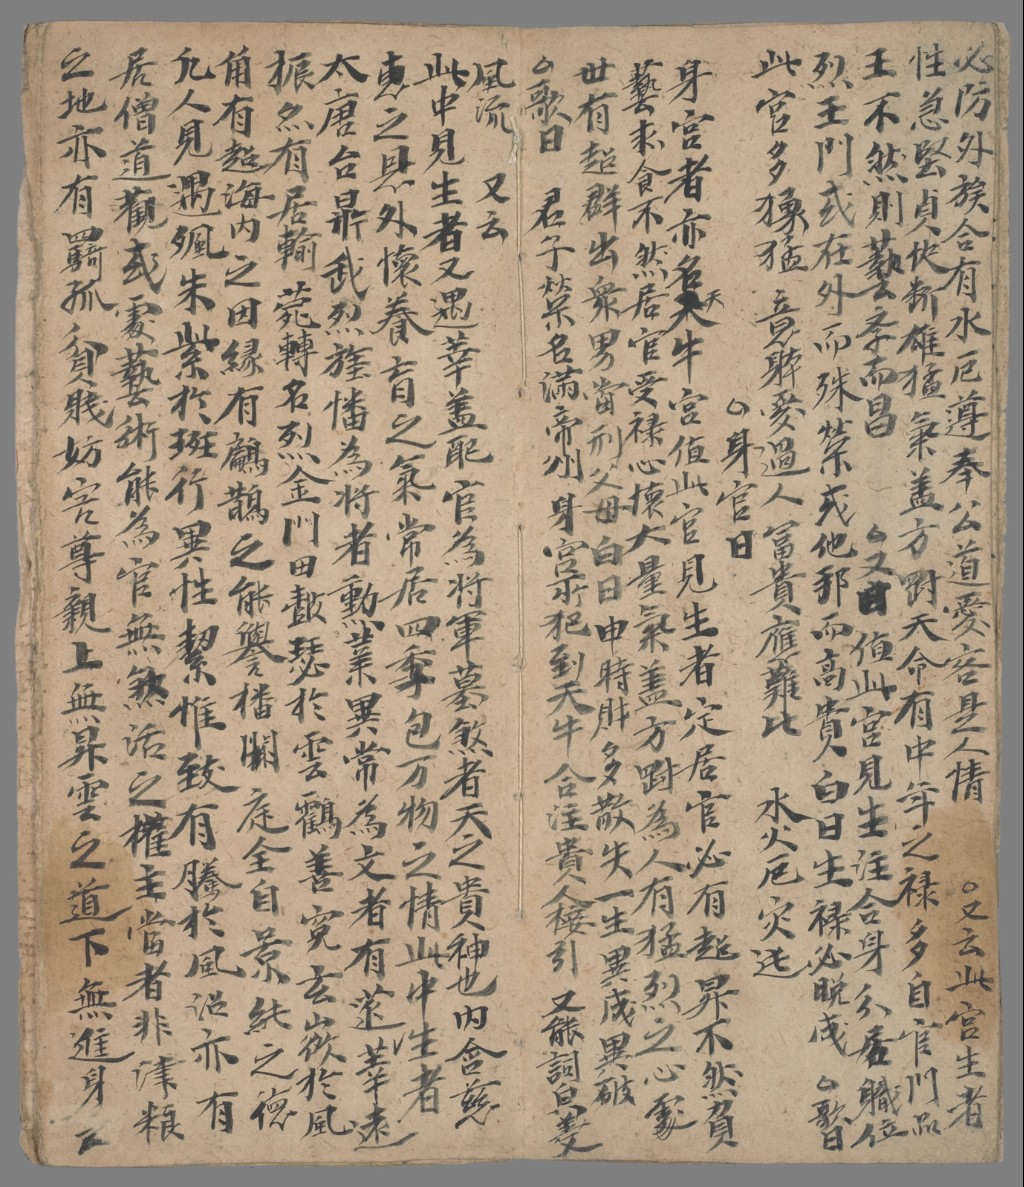 必防外族合有水厄尊奉公道愛容是人情 又云此宮生者
性急堅貞使断雄猛氣盖方尉天命有中年之禄多自官門品
王不然則藝手而昌 又曰 值此宮見生注合身介居職位
烈王門或在外而殊荣或他邦而高貴白日生禄必晚成 歌曰
此宮多獷猛 意聊愛過人 富貴應難比 水火厄灾迍
身宮曰
身宮者亦名天牛宮值此宮見生者定居官必有超昇不然貧
藝求食不然居官受禄心懐大量氣盖方尉為人有猛烈之心處
世有超群出衆男當刑父母白日申時財多散失一生異成異破
歌曰 君子荣名滿帝州 身宮所犯到天牛 合注貴人接引 又能詞
風流 又云
此中見生者又遇莘盖配官為将軍墓煞者天之貴神也内含慈
恵之恩外懐養育之氣常居四季包万物之情此中生者
太唐台鼎武烈旌幡為将者勲業異常為文者有蓬莘遠
振久有居輪莞轉名烈金門田鼓瑟於雲霸善寛玄巌於風
角有超海内之因縁有鸕鵲之能譽播闕庭全自景純之德
凡人見遇颯朱紫於班行異性絜惟致有騰於風沼亦有
居僧道觀或處藝術能為官無煞活之權主當者非津粮
之地亦有羈孤貧賎妨害尊親上無昇雲之道下無進身